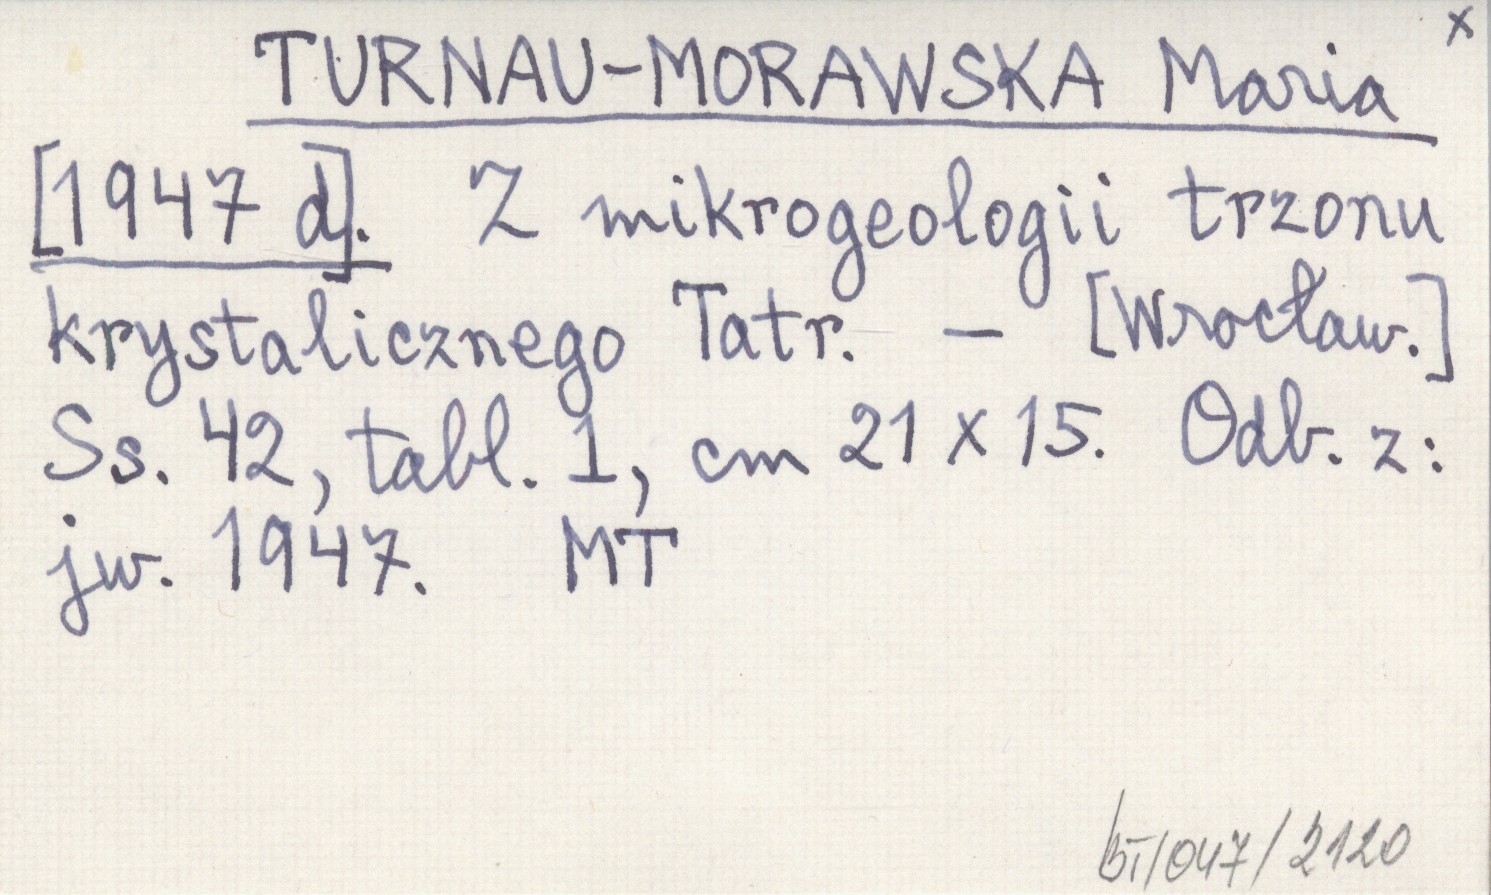 x
TURNAU-MORAWSKA Maria
[1947 d]. Z mikrogeologii trzonu
krystalicznego Tatr. – [Wrocław.]
Ss. 42, tabl. 1, cm 21 x 15. Odb. z:
jw. 1947. MT
/047/2120